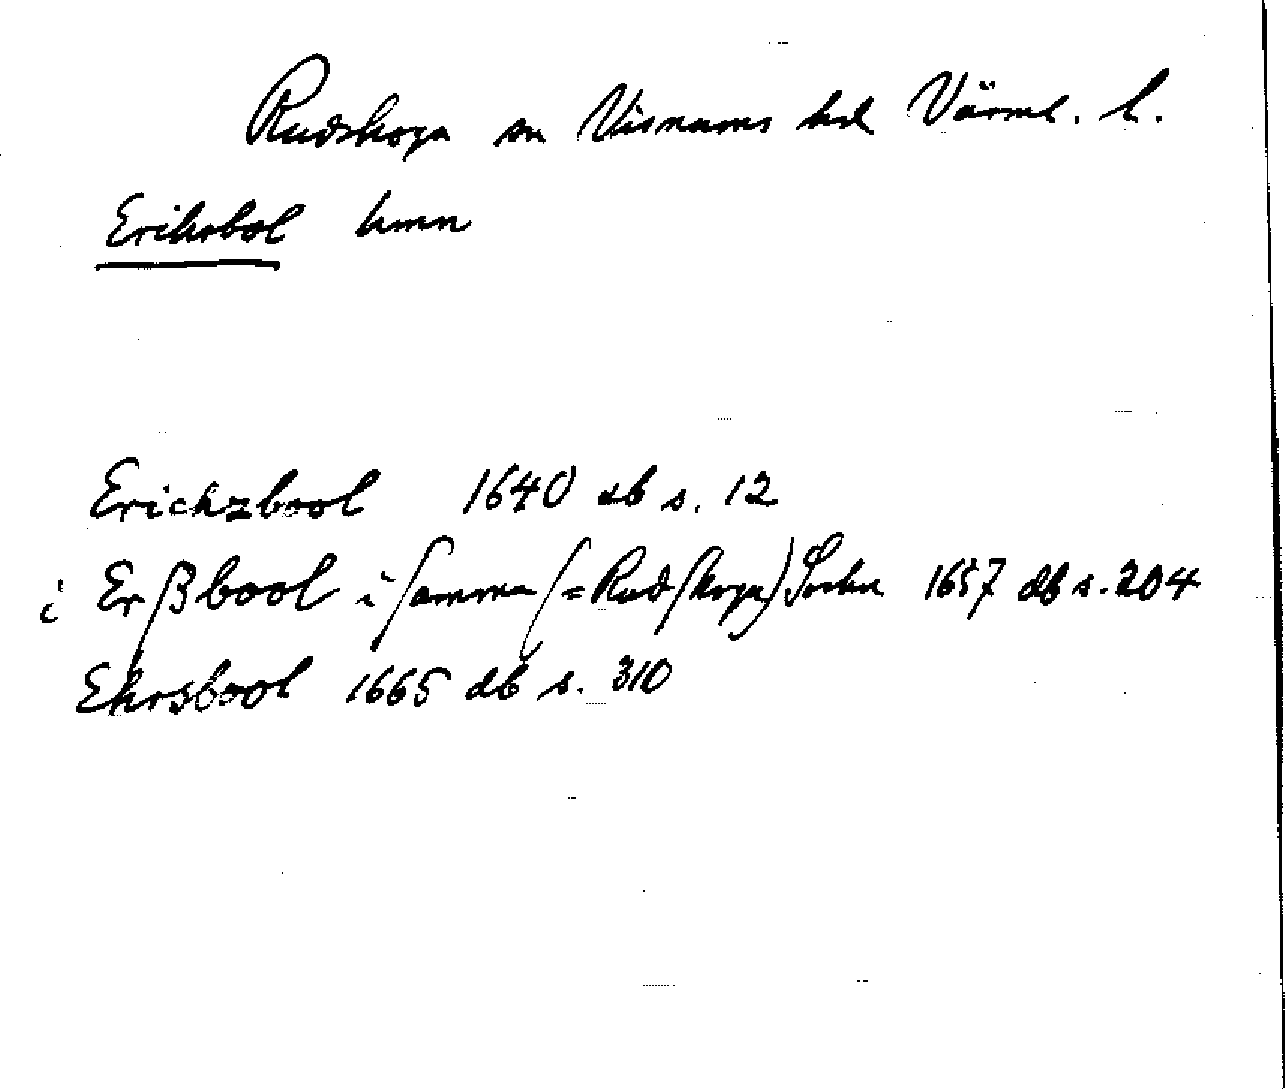 Rudskoga sn Visnums hd Värml. l.
Eriksbol hmn
Erichzbool 1640 db s. 12
i Erßbool i ſamma (= Rudſkoga) Sochn 1657 db s. 204
Ehrsbool 1665 db s. 310